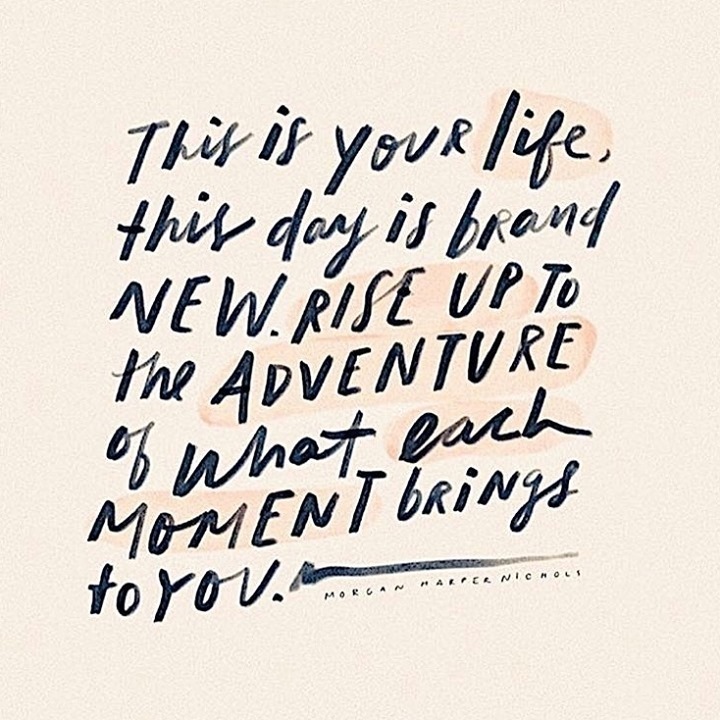 This is your life,
this day is brand
NEW. RISE UP TO
the ADVENTURE
of what each
MOMENT brings
to YOU.
MORGAN HARPER NICHOLS